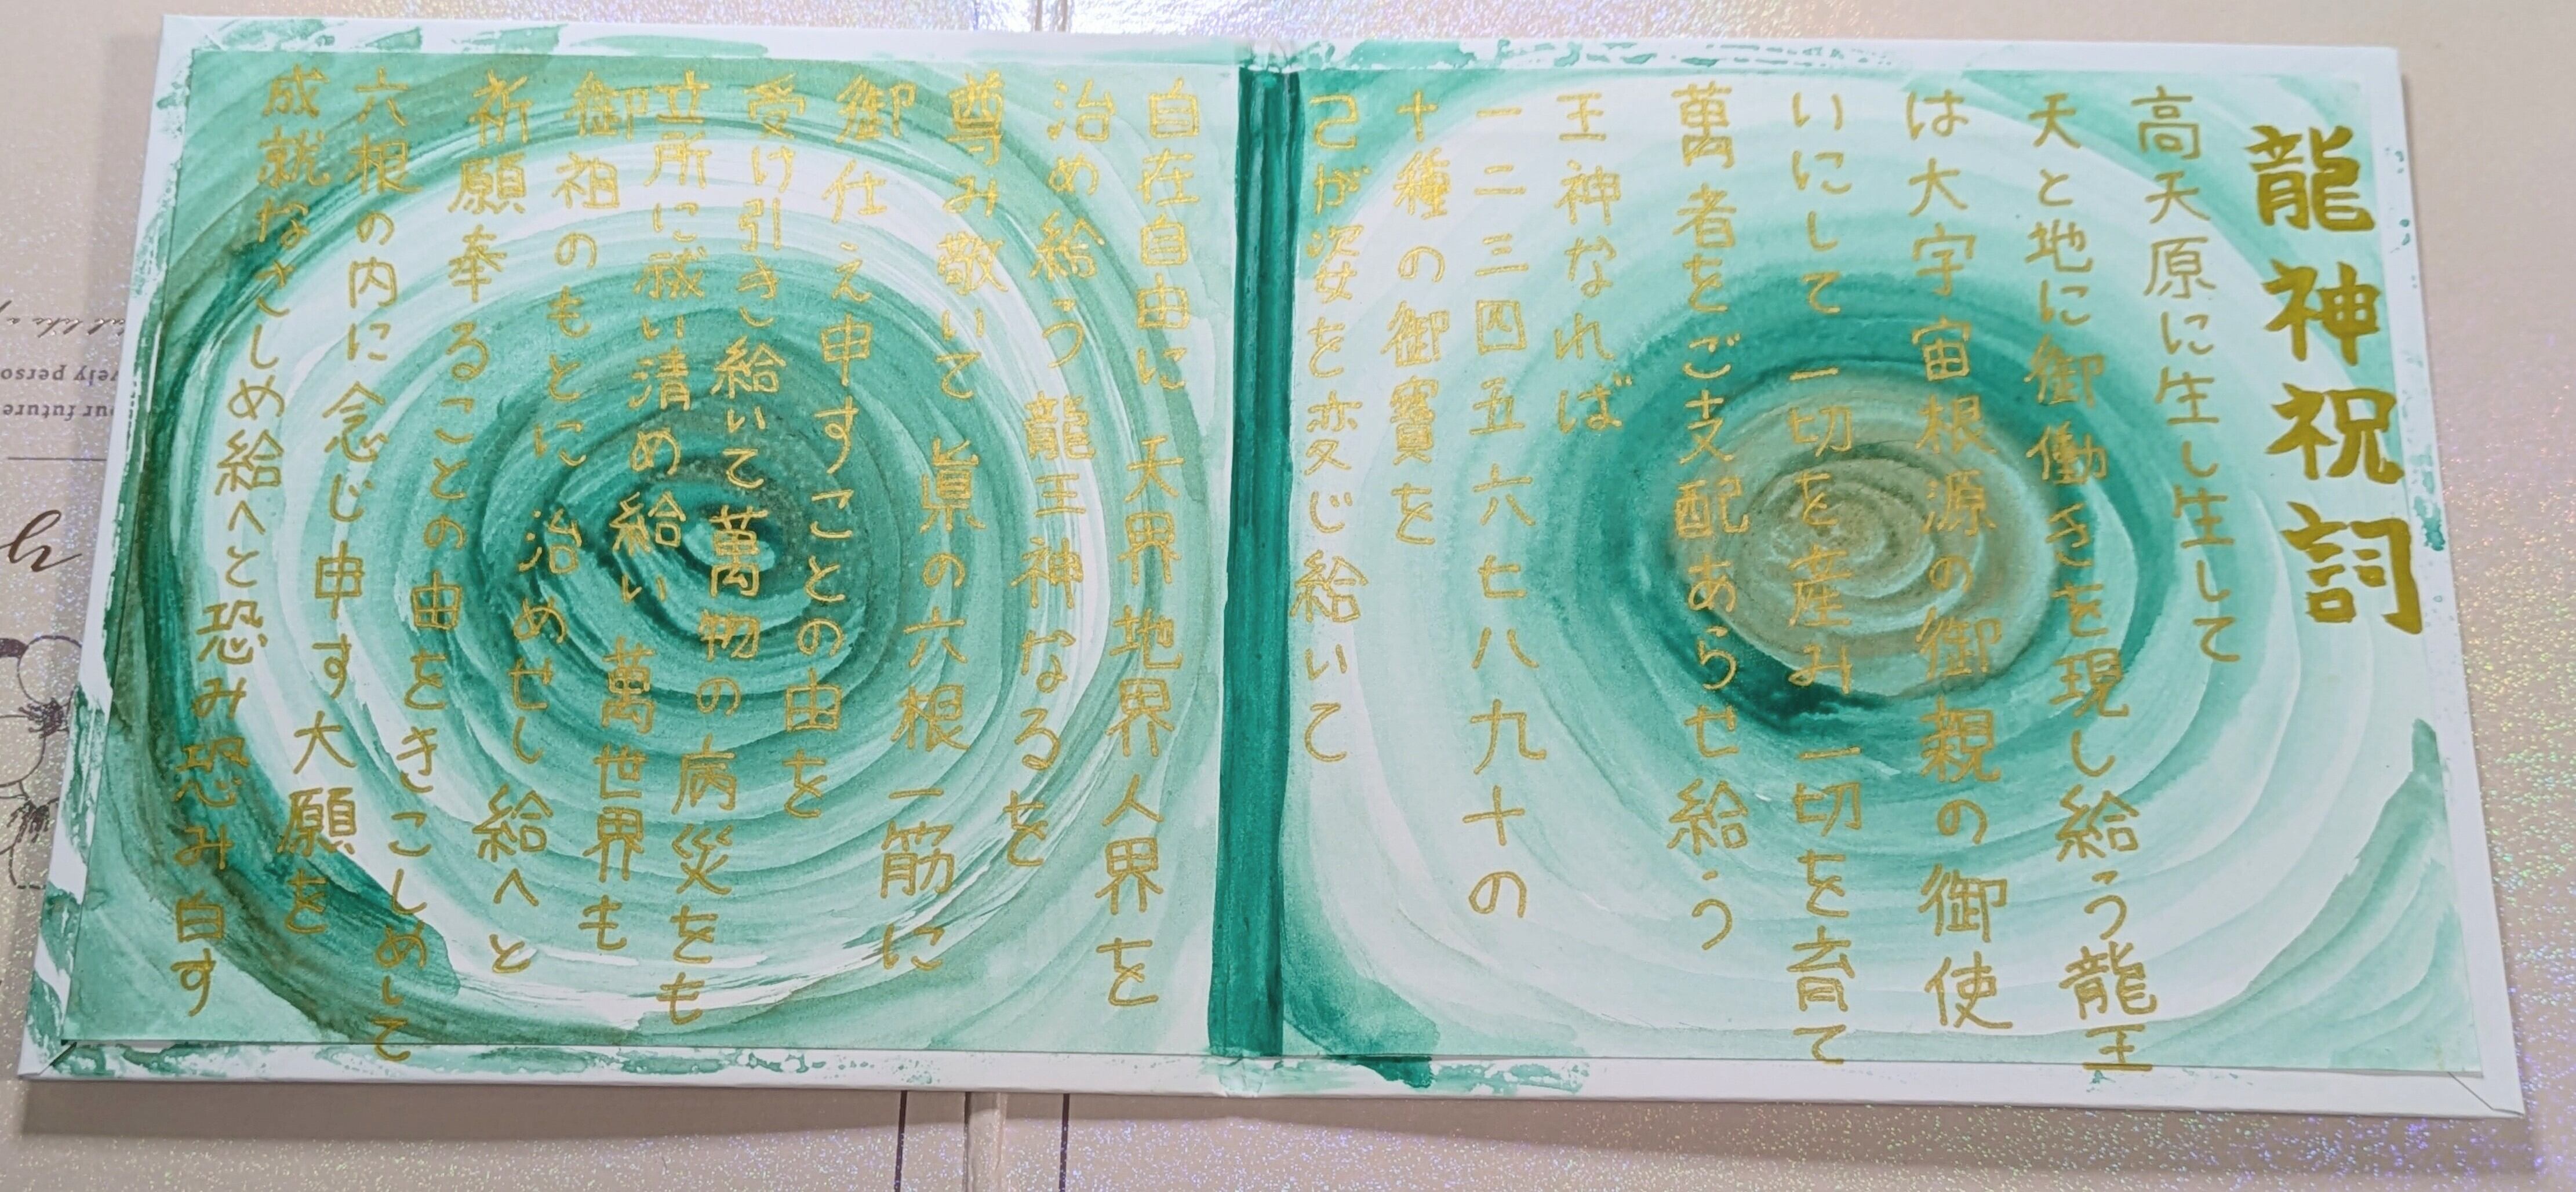 龍神祝詞
高天原に生し生して
天と地に御働きを現し給う龍王
は大宇宙根源の御親の御使
いにして一切を産み一切を育て
萬者をご支配あらせ給う
王神なれば
一二三四五六七八九十の
十種の御寶を
己が姿と変じ給いて
自在自由に天界地界人界を
治め給う龍王神なるを
尊み敬いて眞の六根一筋に
御仕え申すことの由を
受け引き給いて萬物の病災をも
立所に祓い清め給い萬世界も
御祖のもとに治めせしめ給へと
祈願奉ることの由をきこしめして
六根の内に念じ申す大願を
成就なさしめ給へと恐み恐み白す